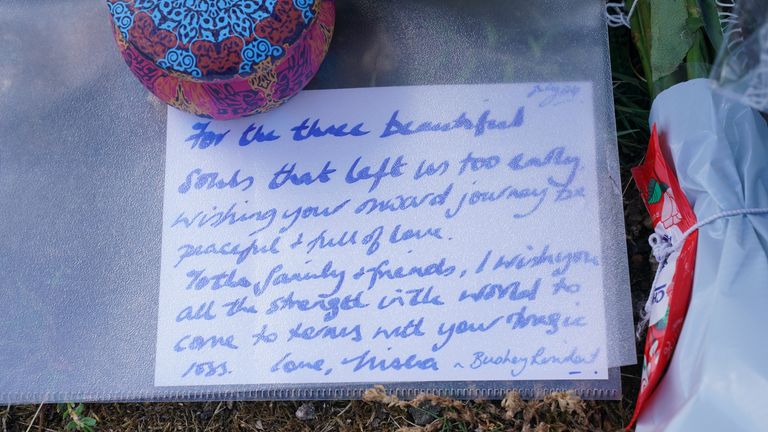 July 24
For the three beautiful
souls that left us too early,
wishing your onward journey be
peaceful & full of love.
To the family & friends, I wish you
all the strength in the world to
come to terms with your tragic
loss. Love, Nisha ~ Bushey Resident